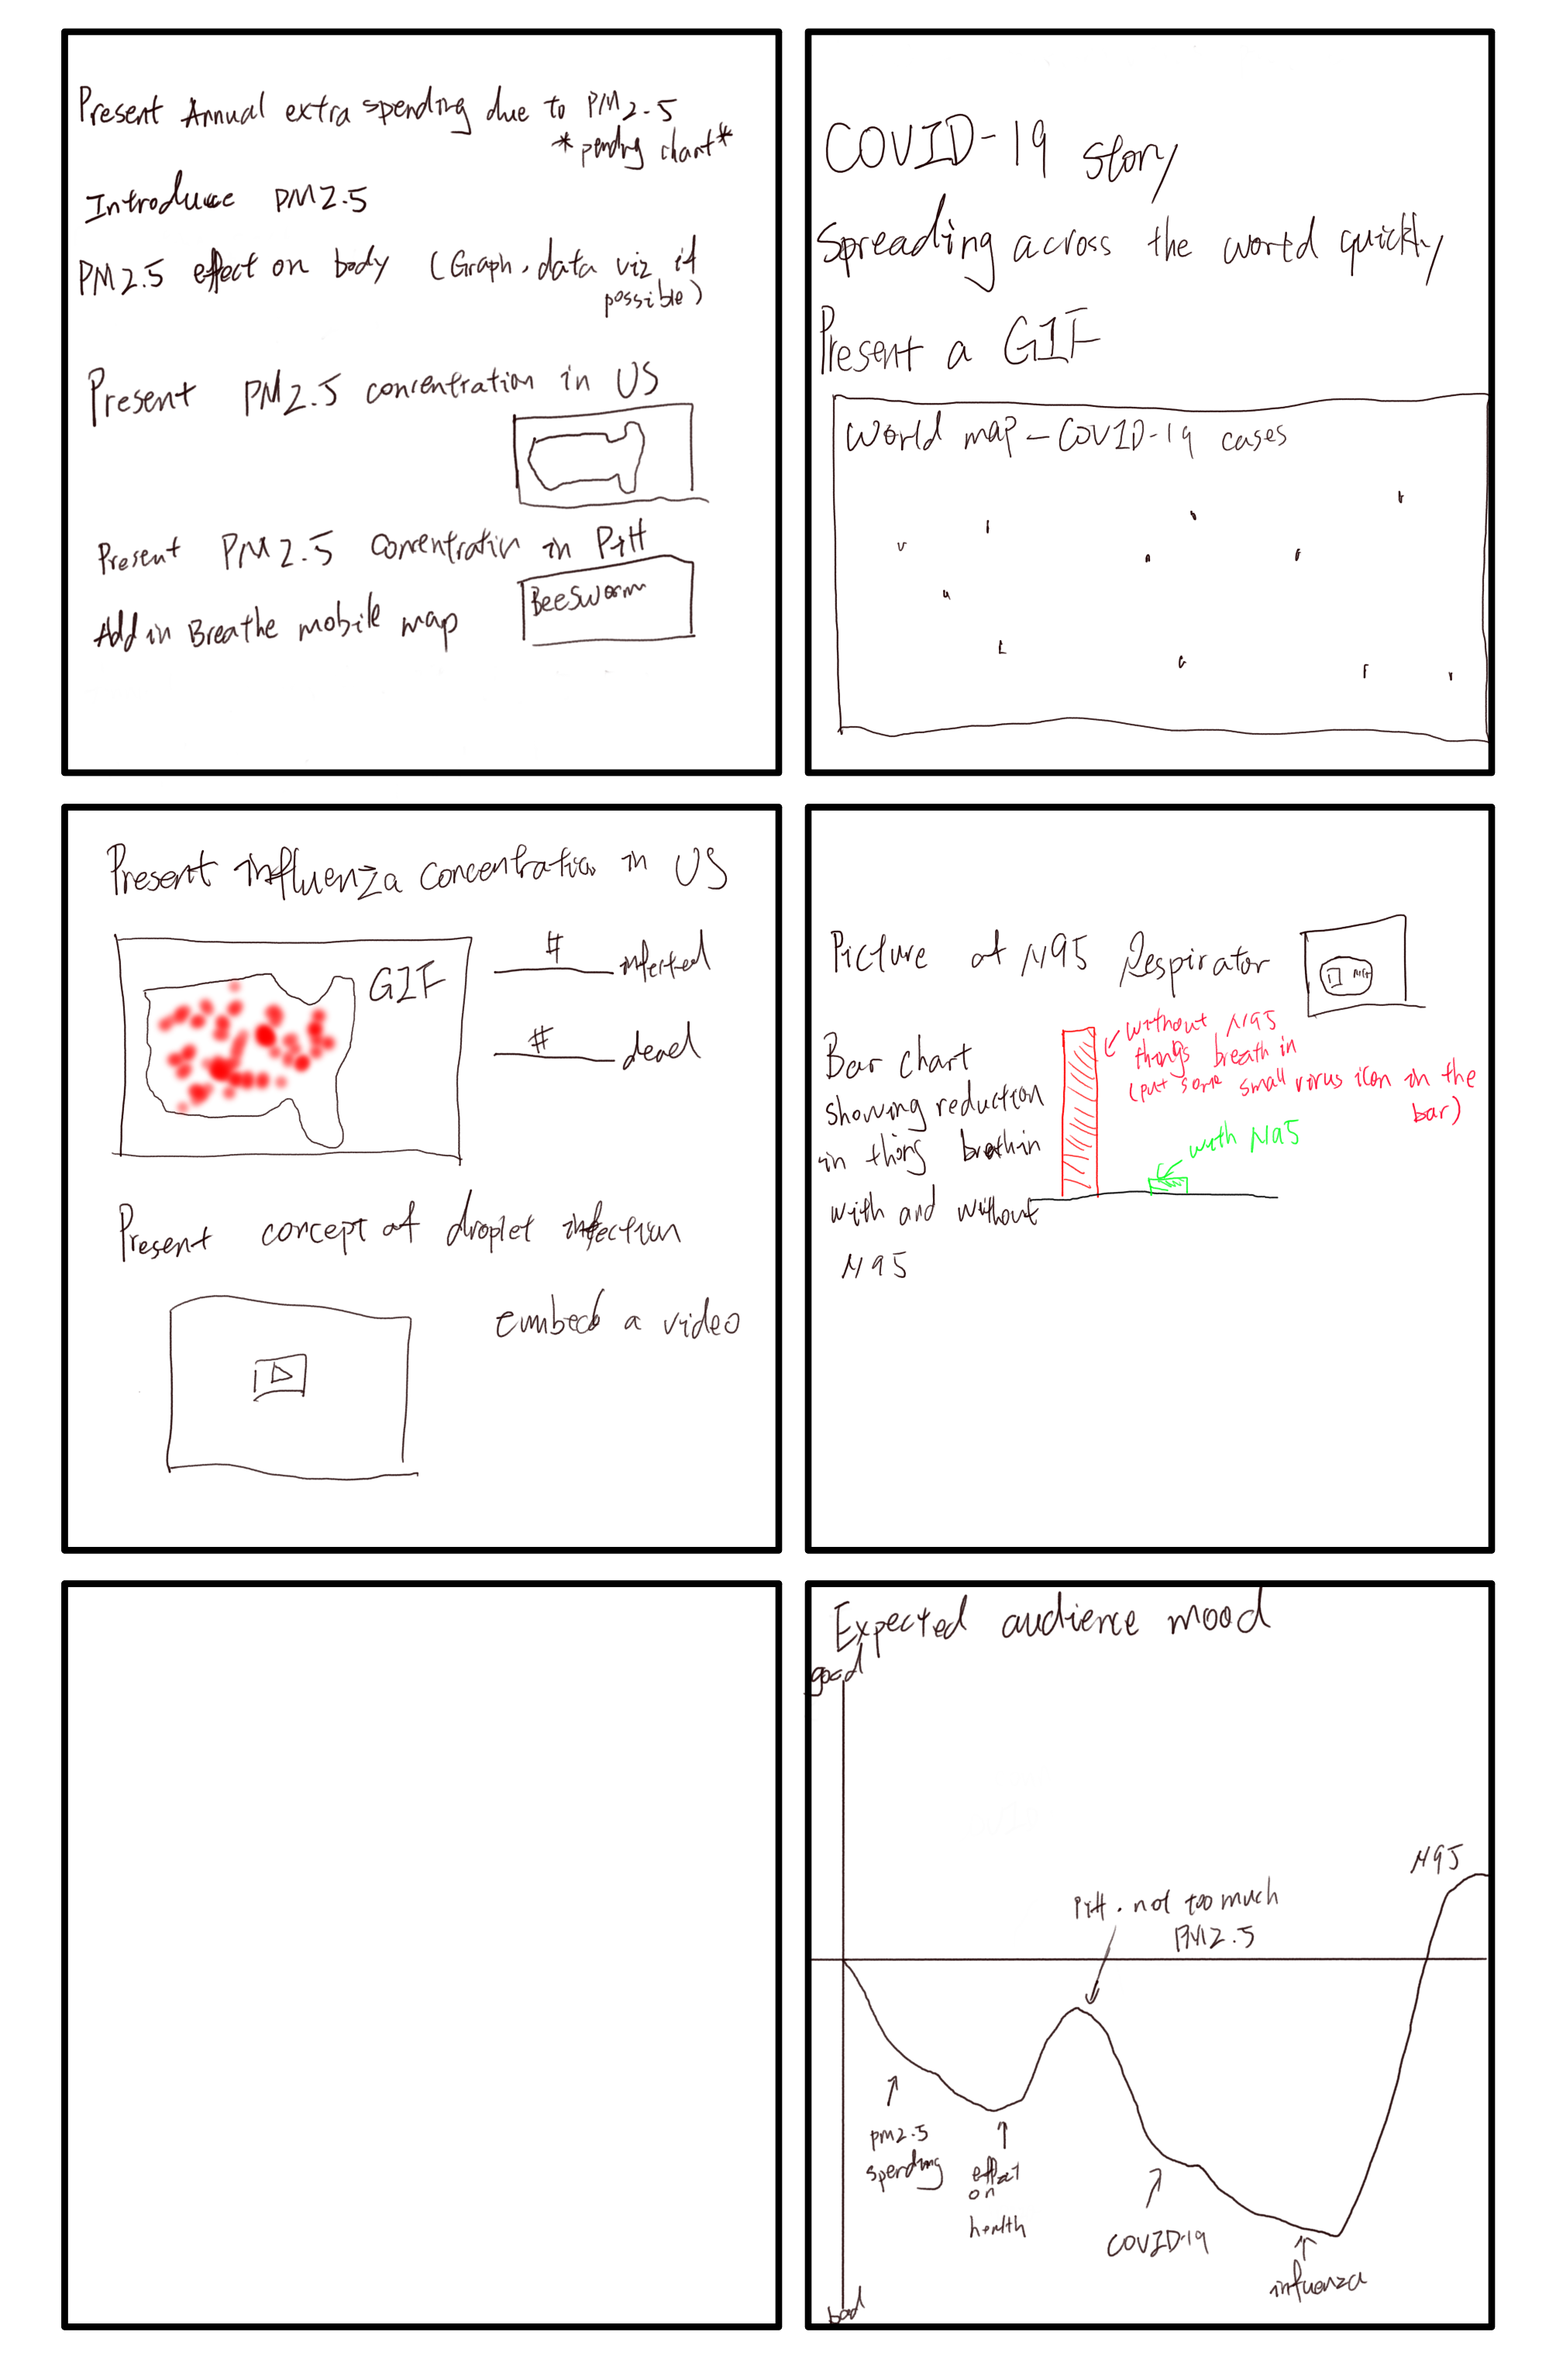 Present Annual extra spending due to PM2.5
*pending chart*
Introduce PM2.5
PM2.5 effect on body (Graph, data viz if
possible)
Present PM2.5 concentration in US
Present PM2.5 Concentration in Pitt
BeeSworm
Add in Breathe mobile map
COVID-19 story
Spreading across the world quickly
Present a GIF
World map - COVID-19 cases
Present influenza concentration in US
GIF
# infected
# dead
Present concept of droplet infection
embed a video
Picture of N95 Respirator
Bar chart
showing reduction
in thing breathin
with and without
N95
without N95
things breath in
(put some small virus icon in the
bar)
with N95
Expected audience mood
good
N95
Pitt. not too much
PM2.5
pm2.5
spending
effect
on
health
COVID-19
influenza
bad